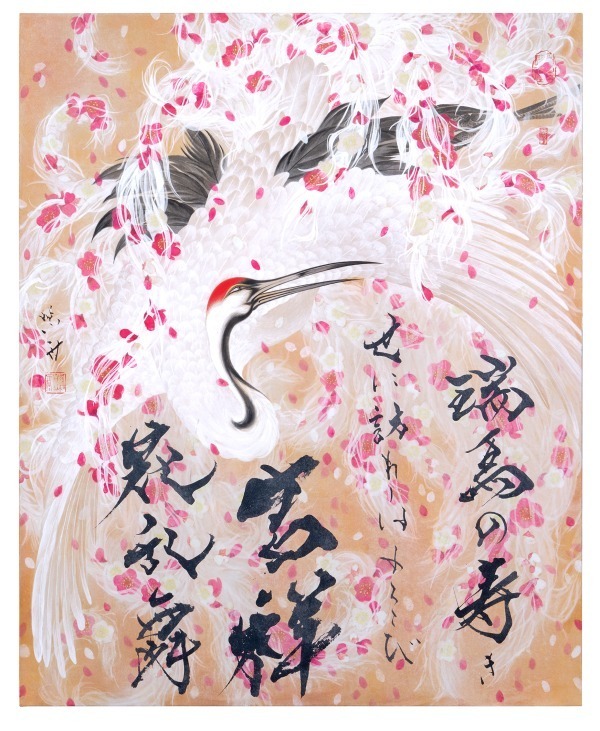 瑞鳥の寿き
せに訪れしはよろこび
吉祥
花乱舞